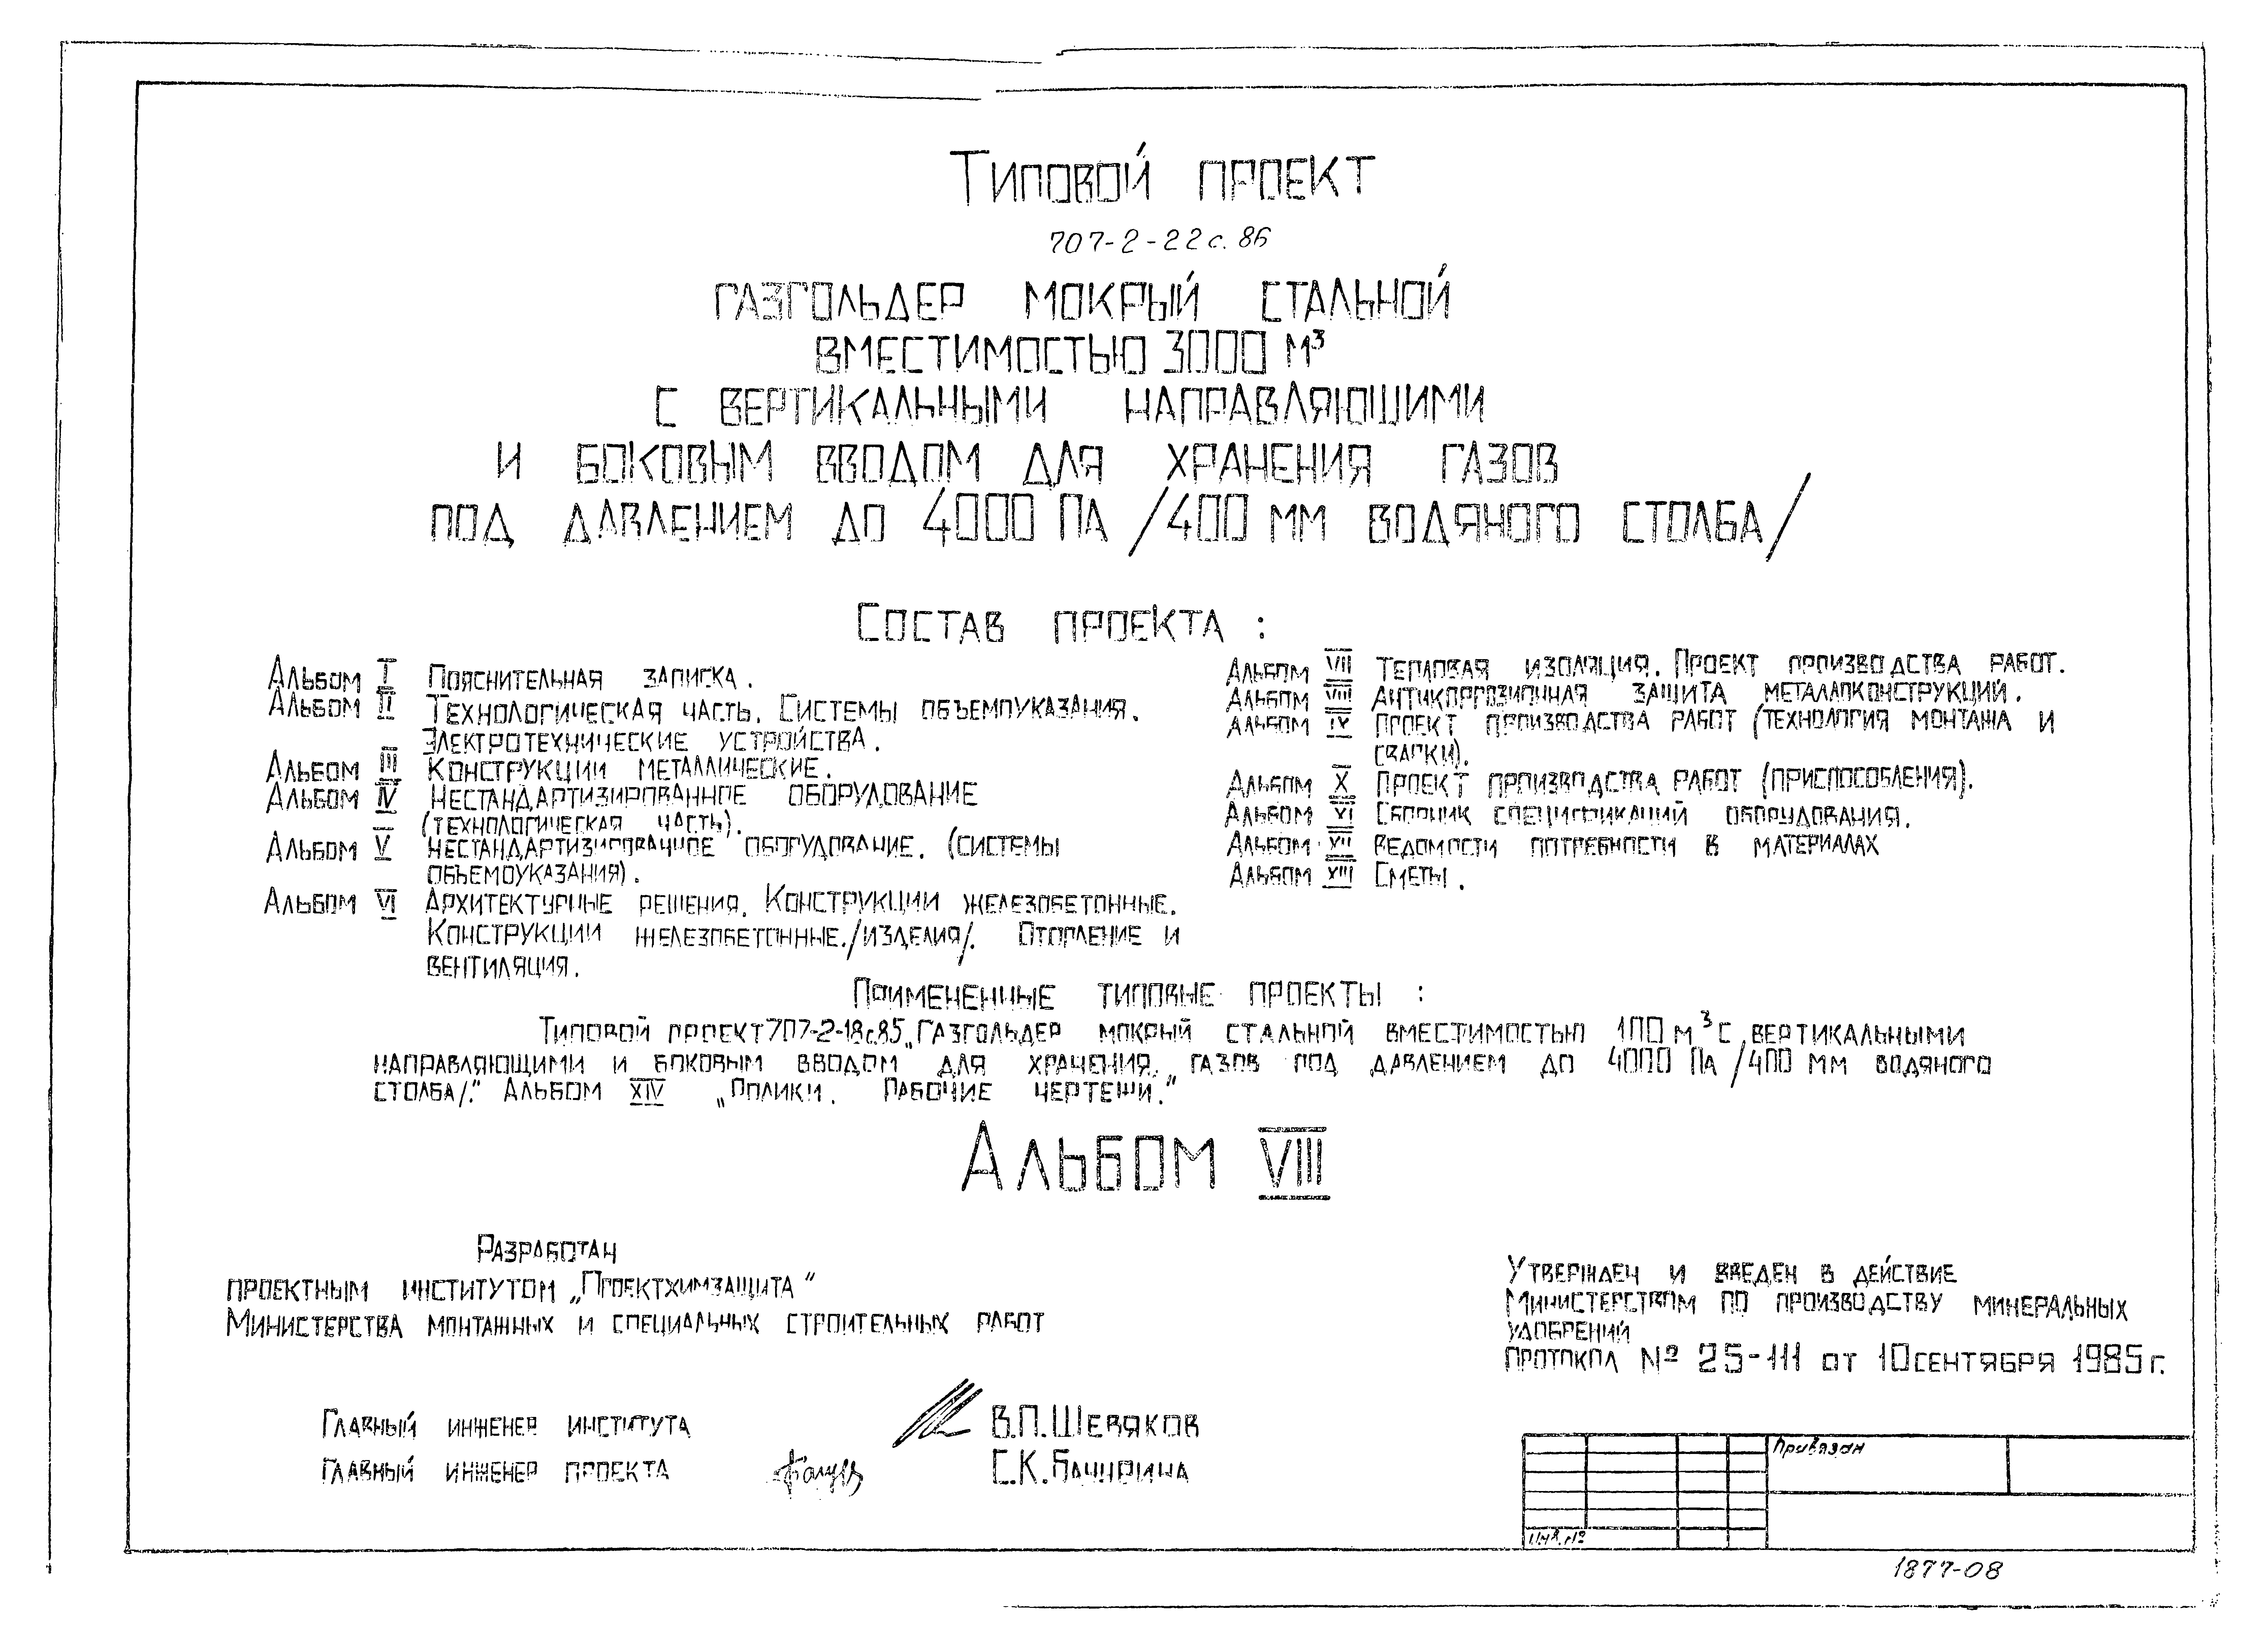 Типовой проект
707-2-22с.86
газгольдер мокрый стальной
вместимостью 3000 м³
с вертикальными направляющими
и боковым вводом для хранения газов
под давлением до 4000 Па /400 мм водяного столба/
Состав проекта :
Альбом I Пояснительная записка.
Альбом II Технологическая часть. Системы объемоуказания.
Электротехнические устройства.
Альбом III Конструкции металлические.
Альбом IV Нестандартизированное оборудование
(технологическая часть).
Альбом V Нестандартизированное оборудование. (системы
объемоуказания).
Альбом VI Архитектурные решения. Конструкции железобетонные.
Конструкции железобетонные./изделия/. Отопление и
вентиляция.
Альбом VII Тепловая изоляция. Проект производства работ.
Альбом VIII Антикоррозионная защита металлоконструкций.
Альбом IX Проект производства работ (технология монтажа и
сварки).
Альбом X Проект производства работ (приспособления).
Альбом XI Сборник спецификаций оборудования.
Альбом XII Ведомости потребности в материалах
Альбом XIII Сметы.
Примененные типовые проекты :
Типовой проект 707-2-18с.85 „Газгольдер мокрый стальной вместимостью 100 м³ с вертикальными
направляющими и боковым вводом для хранения газов под давлением до 4000 Па /400 мм водяного
столба/.” Альбом XIV „Ролики. Рабочие чертежи.”
Альбом VIII
Разработан
проектным институтом „Проектхимзащита”
Министерства монтажных и специальных строительных работ
Утвержден и введен в действие
Министерством по производству минеральных
удобрений
протокол № 25-111 от 10 сентября 1985 г.
Главный инженер института В.П. Шевяков
Главный инженер проекта С.К. Бачурина
Привязан
Инв. №
1877-08